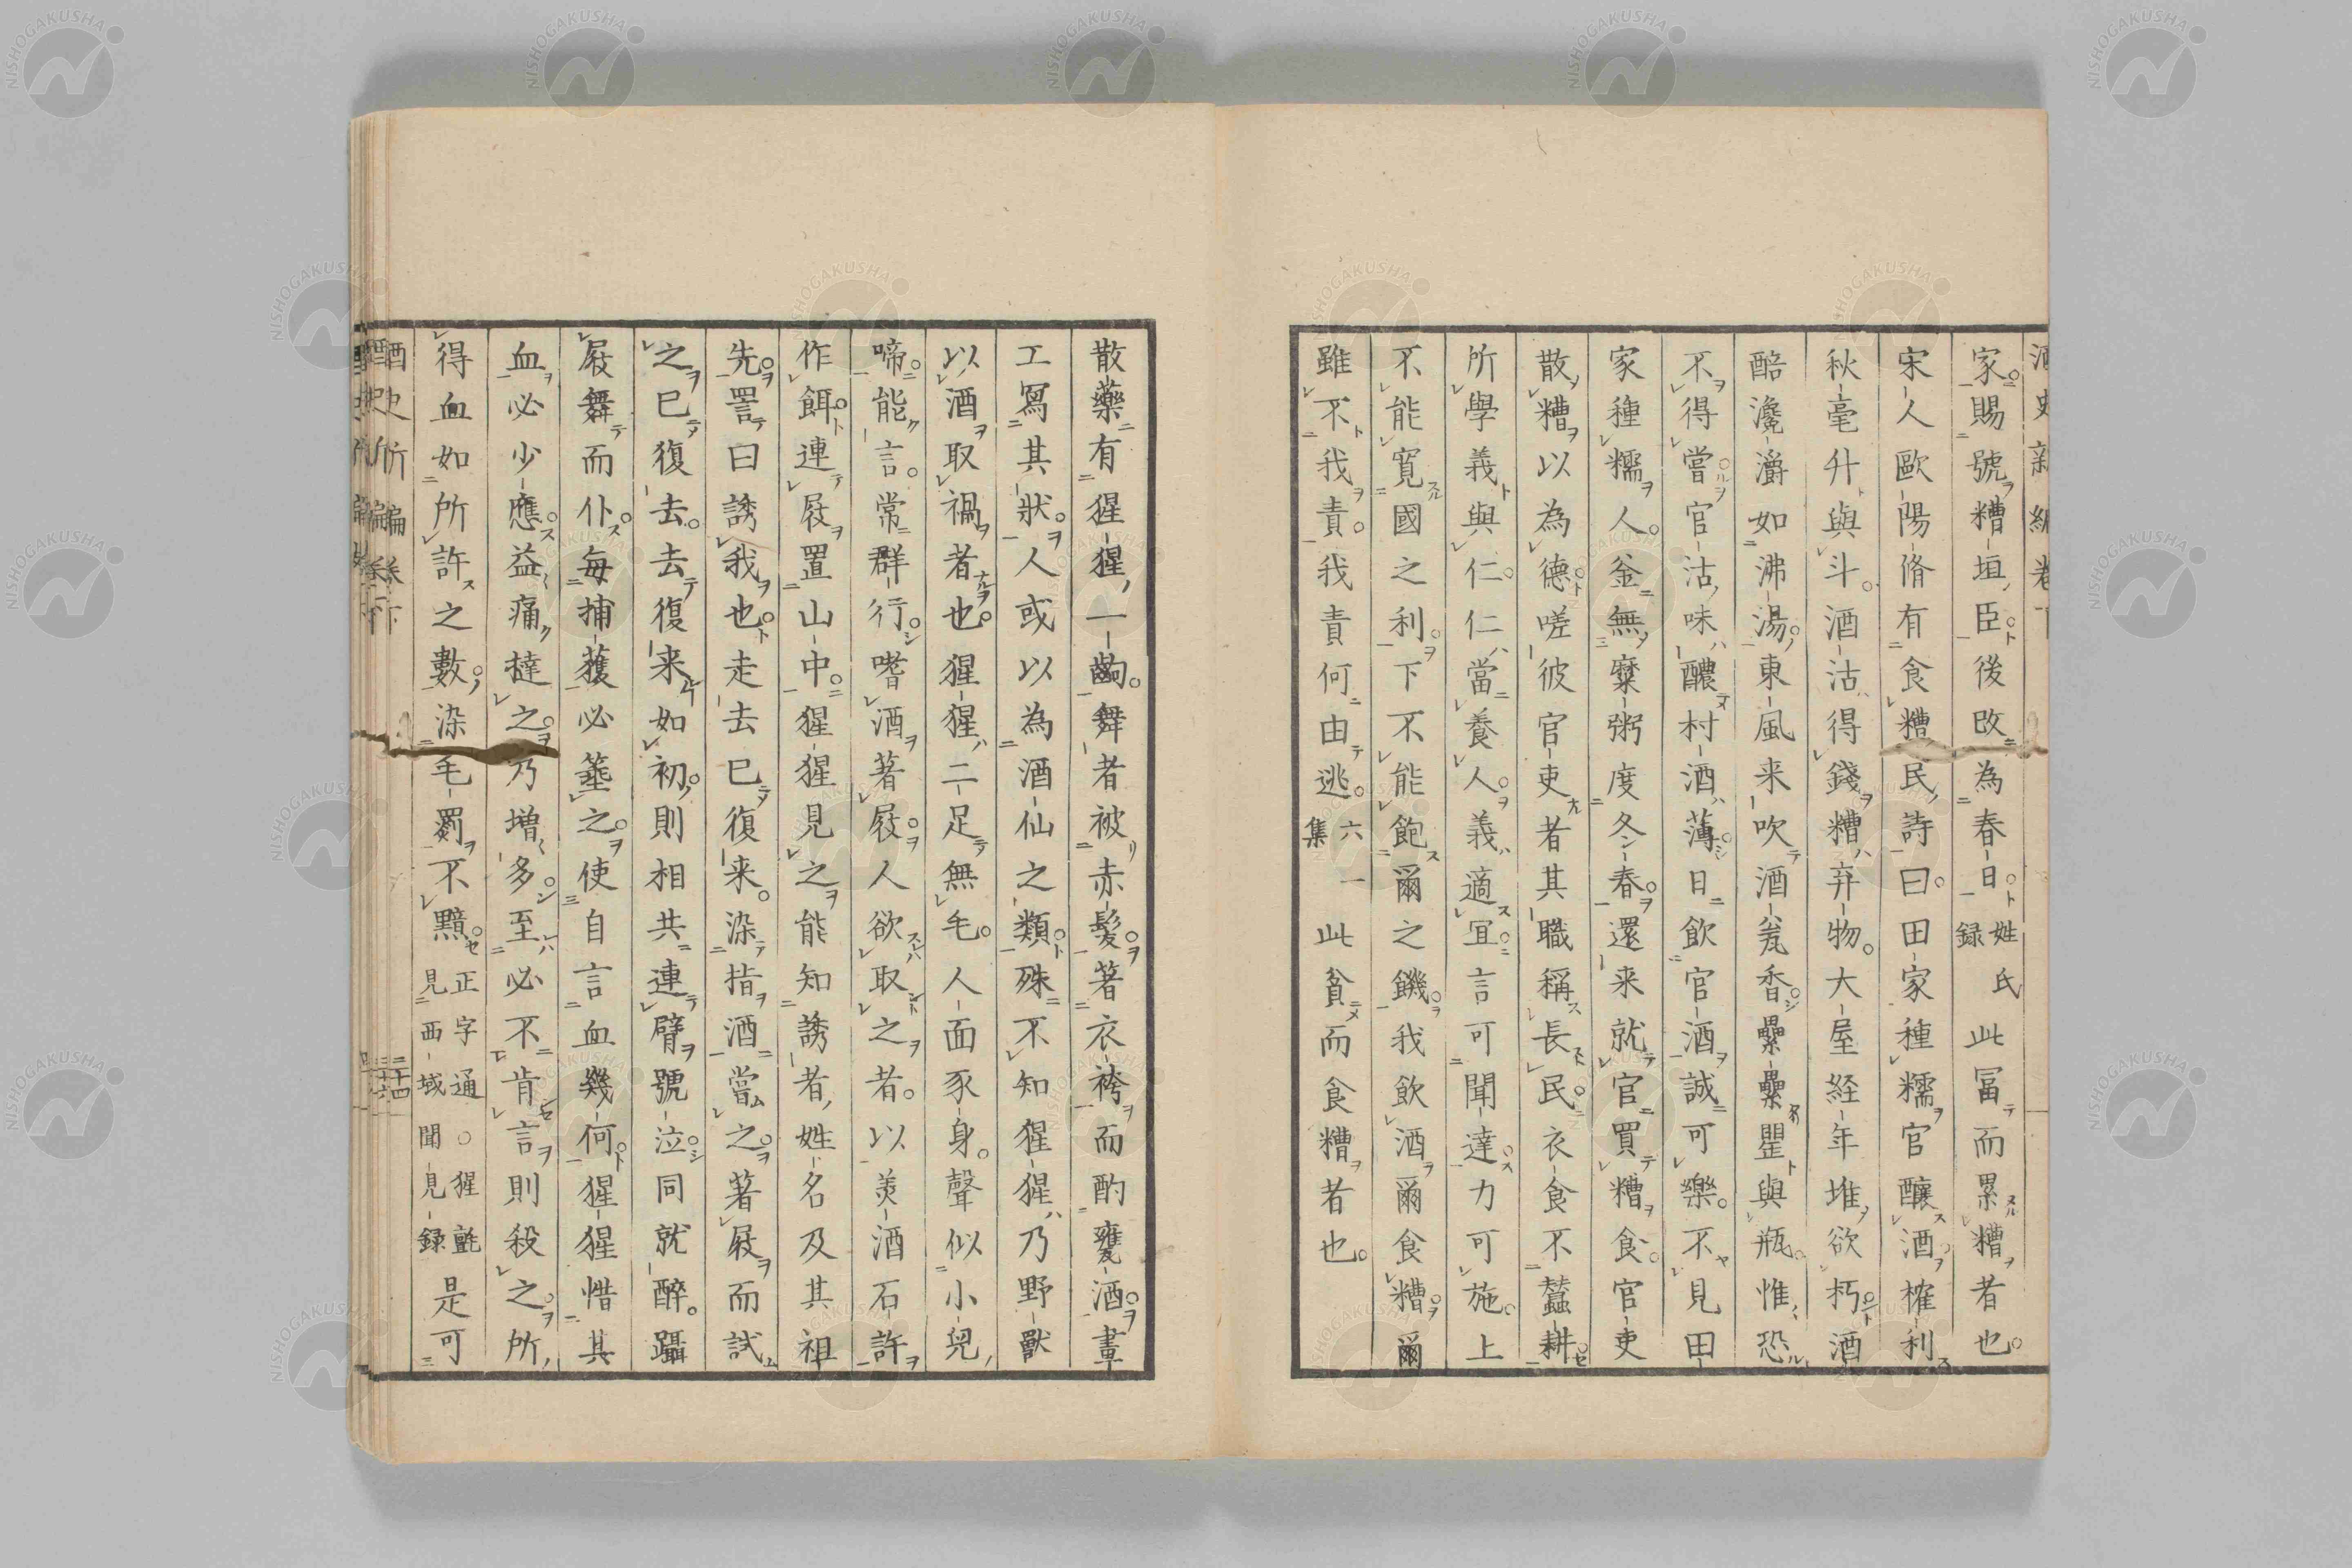 家賜號糟垣臣後改為春日姓氏録此冨而累糟者也
宋人歐陽脩有食糟民詩曰田家種糯官釀酒榷利
秋毫升與斗酒沽得錢糟弃物大屋経年堆欲朽酒
醅瀺灂如沸湯東風来吹酒瓮香纍纍罌與瓶惟恐
不得嘗官沽味醲村酒薄日飲官酒誠可樂不見田
家種糯人釜無糜粥度冬春還来就官買糟食官吏
散糟以為德嗟彼官吏者其職稱長民衣食不蠶耕
所學義與仁仁當養人義適宜言可聞達力可施上
不能寛國之利下不能飽爾之饑我飲酒爾食糟爾
雖不我責我責何由逃六一集此貧而食糟者也
散藥有猩猩一齣舞者被赤髪著衣袴而酌甕酒畫
工寫其狀人或以為酒仙之類殊不知猩猩乃野獸
以酒取禍者也猩猩二足無毛人面豕身聲似小兒
啼能言常群行嗜酒著屐人欲取之者以美酒石許
作餌連屐置山中猩猩見之能知誘者姓名及其祖
先詈曰誘我也走去已復来染指酒嘗之著屐而試
之已復去去復来如初則相共連臂號泣同就醉躡
屐舞而仆毎捕獲必箠之使自言血幾何猩猩惜其
血必少應益痛撻之乃増多至必不肯言則殺之所
得血如所許之數染毛罽不黦正字通○猩氈見西域聞見録是可